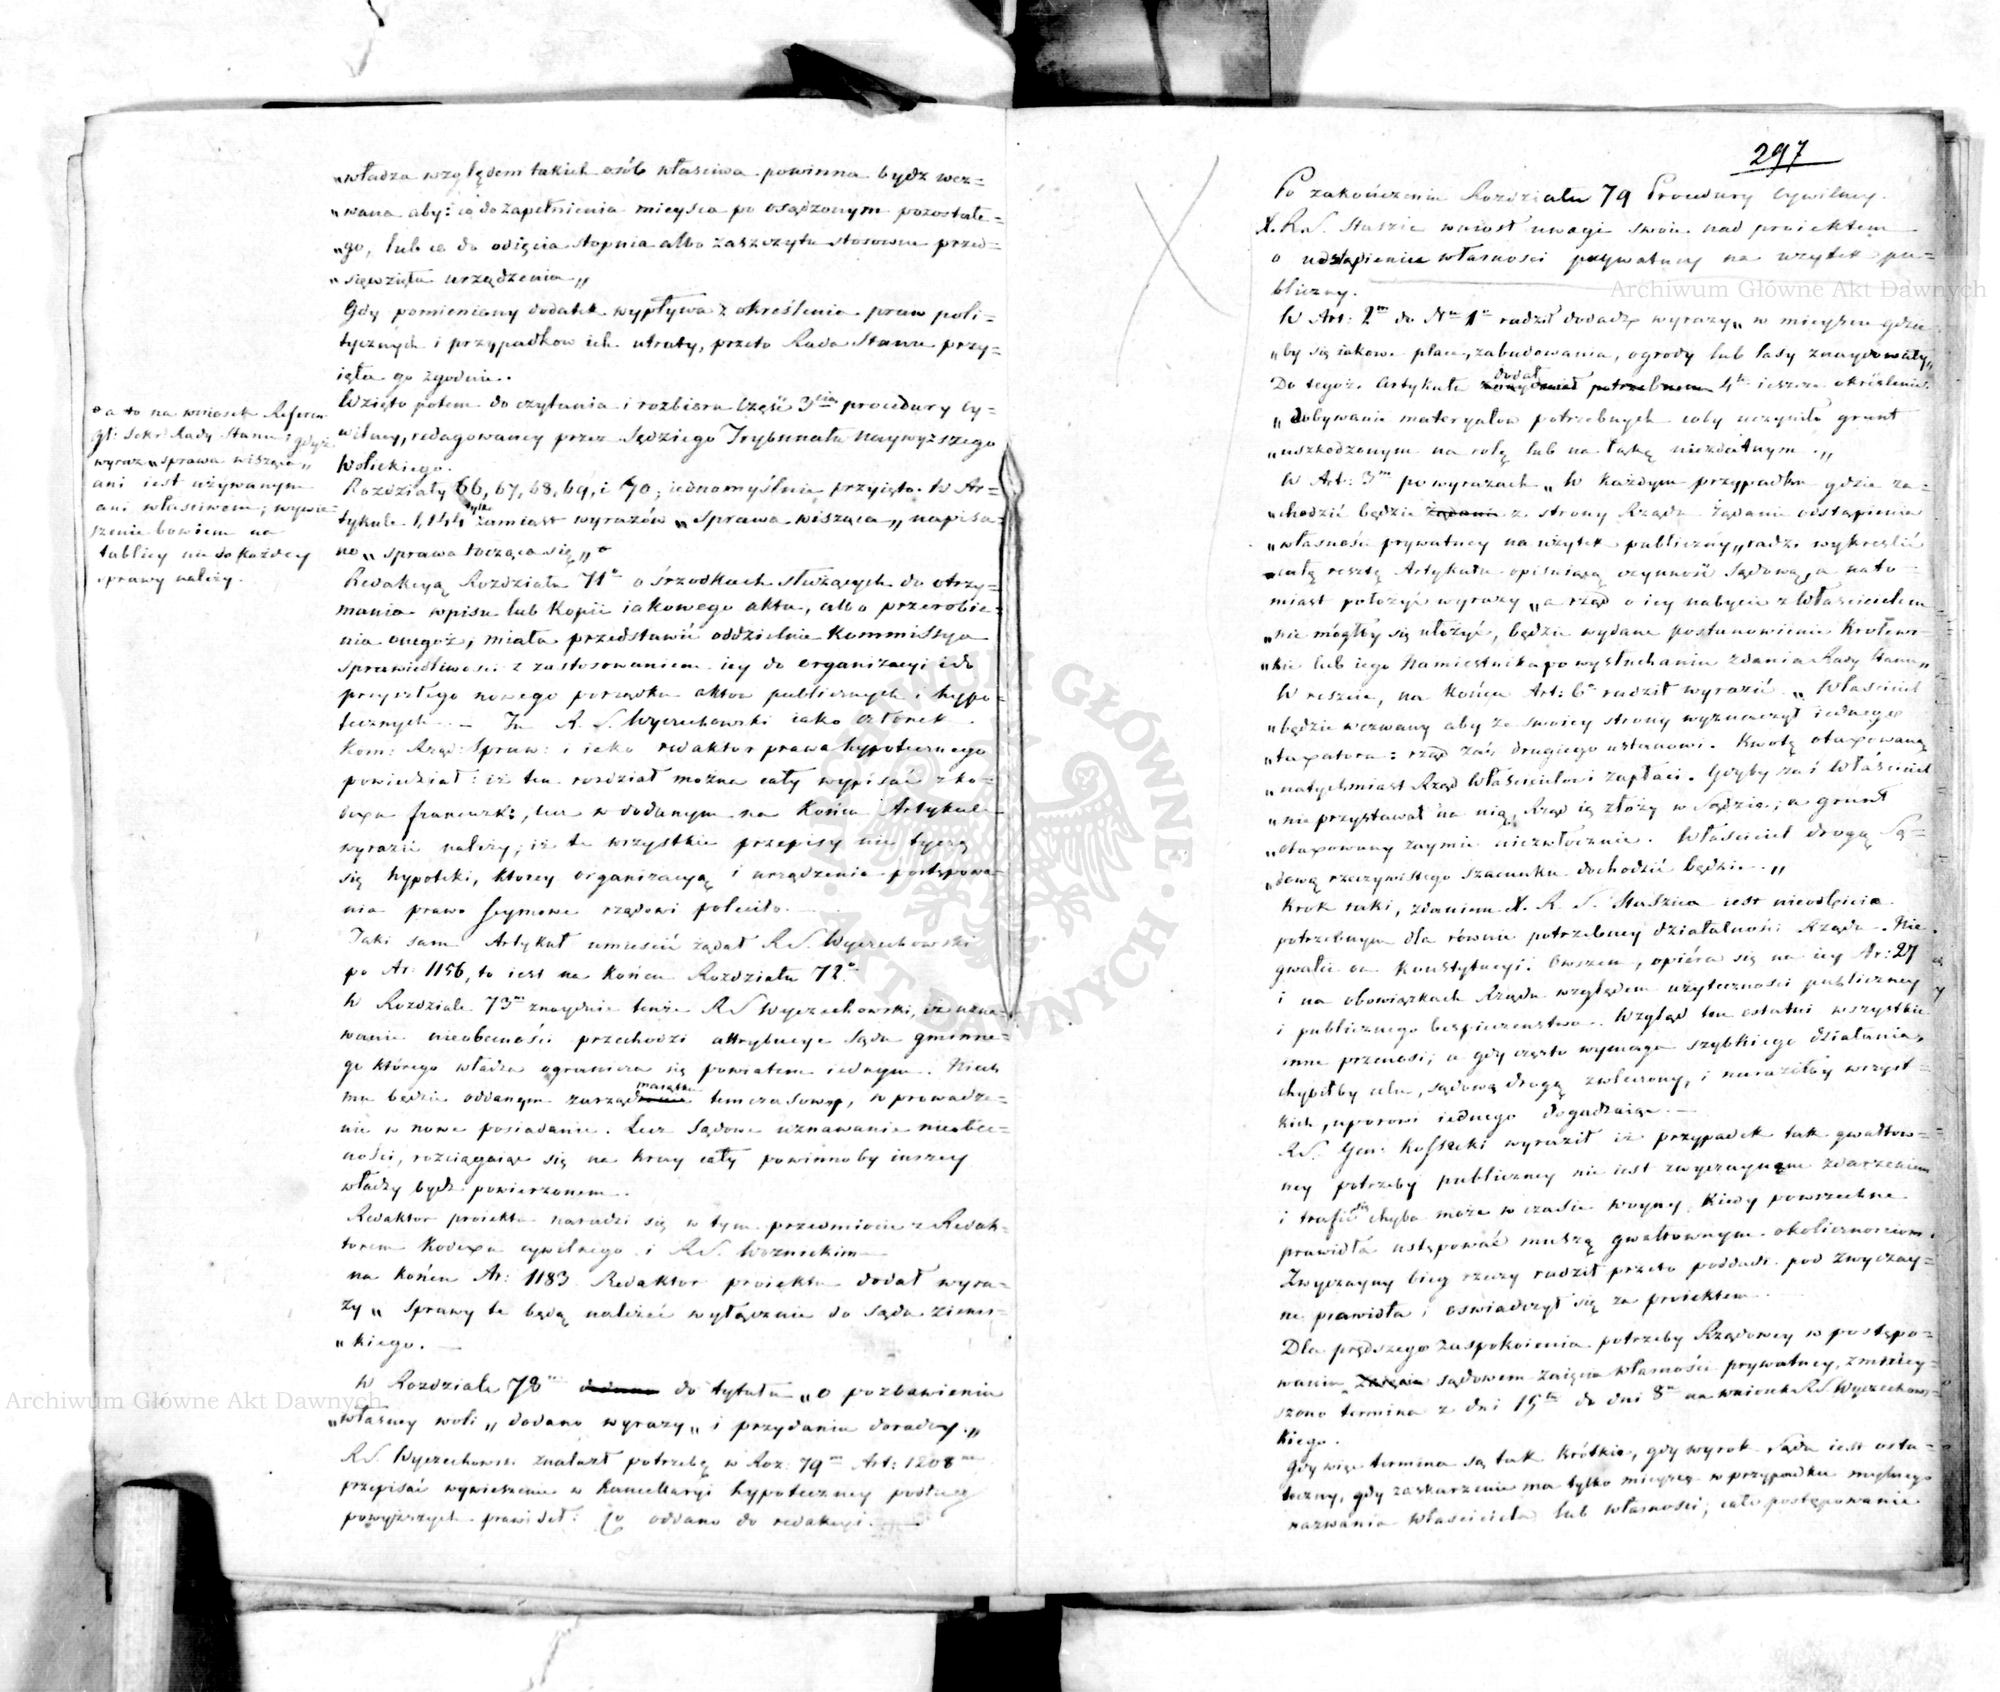 „władza względem takich osób właściwa powinna bydź wez=
„wana aby: co do zapełnienia mieysca po osądzonym pozostałe=
„go, lub co do odięcia stopnia albo zaszczytu stosowne przed=
„sięwzięła urządzenia„
Gdy pomieniony dodatek wypływa z określenia praw poli=
tycznych i przypadków ich utraty, przeto Rada Stanu przy=
ięła go zgodnie.
Wzięto potem do czytania i rozbioru Część 3cią procedury cy=
wilney, redagowaney przez Sędziego Trybunału Naywyższego
Wolickiego.
Rozdziały 66, 67, 68, 69, i 70, iednomyślnie przyięto. W Ar=
tykule 1,144 tylko zamiast wyrazów „Sprawa wisząca„ napisa=
no „sprawa tocząca się„ o
o a to na wniosek Referen
gł: Sekr: Rady Stanu: gdyż
wyraz „sprawa wisząca„
ani iest używanym
ani właściwem; wywie=
szenie bowiem na
tablicy nie do każdey
sprawy należy.
Redakcyą Rozdziału 71o o śrzodkach służących do otrzy=
mania wpisu lub Kopii iakowego aktu, albo przerobie=
nia onegoż, miała przedstawić oddzielnie Kommissya
Sprawiedliwości z zastosowaniem iey do organizacyi i do
przyszłego nowego porządku aktów publicznych i hypo=
tecznych. — R. S. Wyczechowski iako członek
Kom: Rząd: Spraw: i iako redaktor prawa hypotecznego
powiedział: iż ten rozdział można cały wypisać z ko=
dexu francuzk:, lecz w dodanym na końcu Artykule
wyrazić należy; iż te wszystkie przepisy nie tyczą
się hypoteki, ktorey organizacyą i urządzenie postępowa=
nia prawo Seymowe rządowi poleciło.
Taki sam Artykuł umieścić żądał R.S. Wyczechowski
po Ar: 1156, to iest na końcu Rozdziału 72o
W Rozdziale 73m znayduie tenże R.S. Wyczechowski, iż uzna=
wanie nieobecności przechodzi attrybucye Sądu gminne=
go którego władza ogranicza się powiatem iednym. Niech
mu będzie oddanym zarząd maiątku tymczasowy, wprowadze=
nie w nowe posiadanie. Lecz Sądowe uznawanie nieobec=
ności, rozciągaiąc się na kray cały powinnoby inszey
władzy bydź powierzonem.
Redaktor proiektu naradzi się w tym przedmiocie z Redak=
torem Kodexu cywilnego i R.S. Woznickim
na końcu Ar: 1183 Redaktor proiektu dodał wyra=
zy „Sprawy te będą należeć wyłącznie do sądu ziems=
„kiego. —
W Rozdziale 78m do tytułu „o pozbawieniu
„własney woli„ dodano wyrazy „i przydaniu doradcy.„
R.S. Wyczechows: znalazł potrzebę w Roz: 79m Art: 1208m
przepisać wywieszenie w Kancellaryi hypoteczney podług
powyższych prawideł: Co oddano do redakcyi. —
297
Po zakończeniu Rozdziału 79 Procedury cywilney.
X. R.S. Staszic wniósł uwagi swoie nad proiektem
o ustąpienie własności prywatney na użytek pu=
bliczny.
W Art: 2m do Nu 1o radził dodadź wyrazy „w mieyscu gdzie
„by się iakowe place, zabudowania, ogrody lub lasy znaydowały„
Do tegoż Artykułu dodał 4te ieszcze określenie
„dobywanie materyałów potrzebnych coby uczyniło grunt
„uszkodzonym na rolę lub na łąkę niezdatnym.„
W Art: 3m po wyrazach „W każdym przypadku gdzie za=
„chodzić będzie z strony Rządu żądanie odstąpienia
„własności prywatney na użytek publiczny„ radzi wykreślić
całą resztę Artykułu opisuiącą czynność Sądową, a nato=
miast położyć wyrazy „a rząd o iey nabycie z Właścicielem
„nie mógłby się ułożyć, będzie wydane postanowienie Królews=
„kie lub iego Namiestnika po wysłuchaniu zdania Rady Stanu„
W reszcie, na końcu Art: 6o radził wyrazić „Właściciel
„będzie wezwany aby ze swoiey strony wyznaczył iednego
„taxatora: rząd zaś drugiego ustanowi. Kwotę otaxowaną
„natychmiast Rząd Właścicielowi zapłaci. Gdyby zaś Właściciel
„nie przystawał na nią, Rząd ią złoży w Sądzie; a grunt
„otaxowany zaymie niezwłocznie. Właściciel drogą Są=
„dową rzeczywistego szacunku dochodzić będzie.„
Krok taki, zdaniem X. R. S. Staszica iest nieodbicie
potrzebnym dla równie potrzebney działalności Rządu. Nie
gwałci on Konstytucyi. Owszem, opiera się na iey Ar: 27
i na obowiązkach Rządu względem użyteczności publiczney
i publicznego bezpieczeństwa. Wzgląd ten ostatni wszystkie
inne przenosi; a gdy często wymaga szybkiego działania,
chybiłby celu, sądową drogą zwleczony, i naraziłby wszyst=
kich, uporowi iednego dogadzaiąc. —
R.S. Gen: Kossecki wyraził iż przypadek tak gwałtow=
ney potrzeby publiczney nie iest zwyczaynem zdarzeniem
i trafić się chyba może w czasie woyny, kiedy powszechne
prawidła ustępować muszą gwałtownym okolicznościom.
Zwyczayny bieg rzeczy radził przeto poddadź pod zwyczay=
ne prawidła i oświadczył się za proiektem.
Dla prędszego zaspokoienia potrzeby Rządowey w postępo=
waniu sądowem zaięcia własności prywatney, zmniey=
szono termina z dni 15tu do dni 8m na wniosek R.S. Wyczechows=
kiego.
Gdy więc termina są tak krótkie, gdy wyrok Sądu iest osta=
teczny, gdy zaskarżenie ma tylko mieysce w przypadku mylnego
nazwania Właściciela lub własności; całe postępowanie